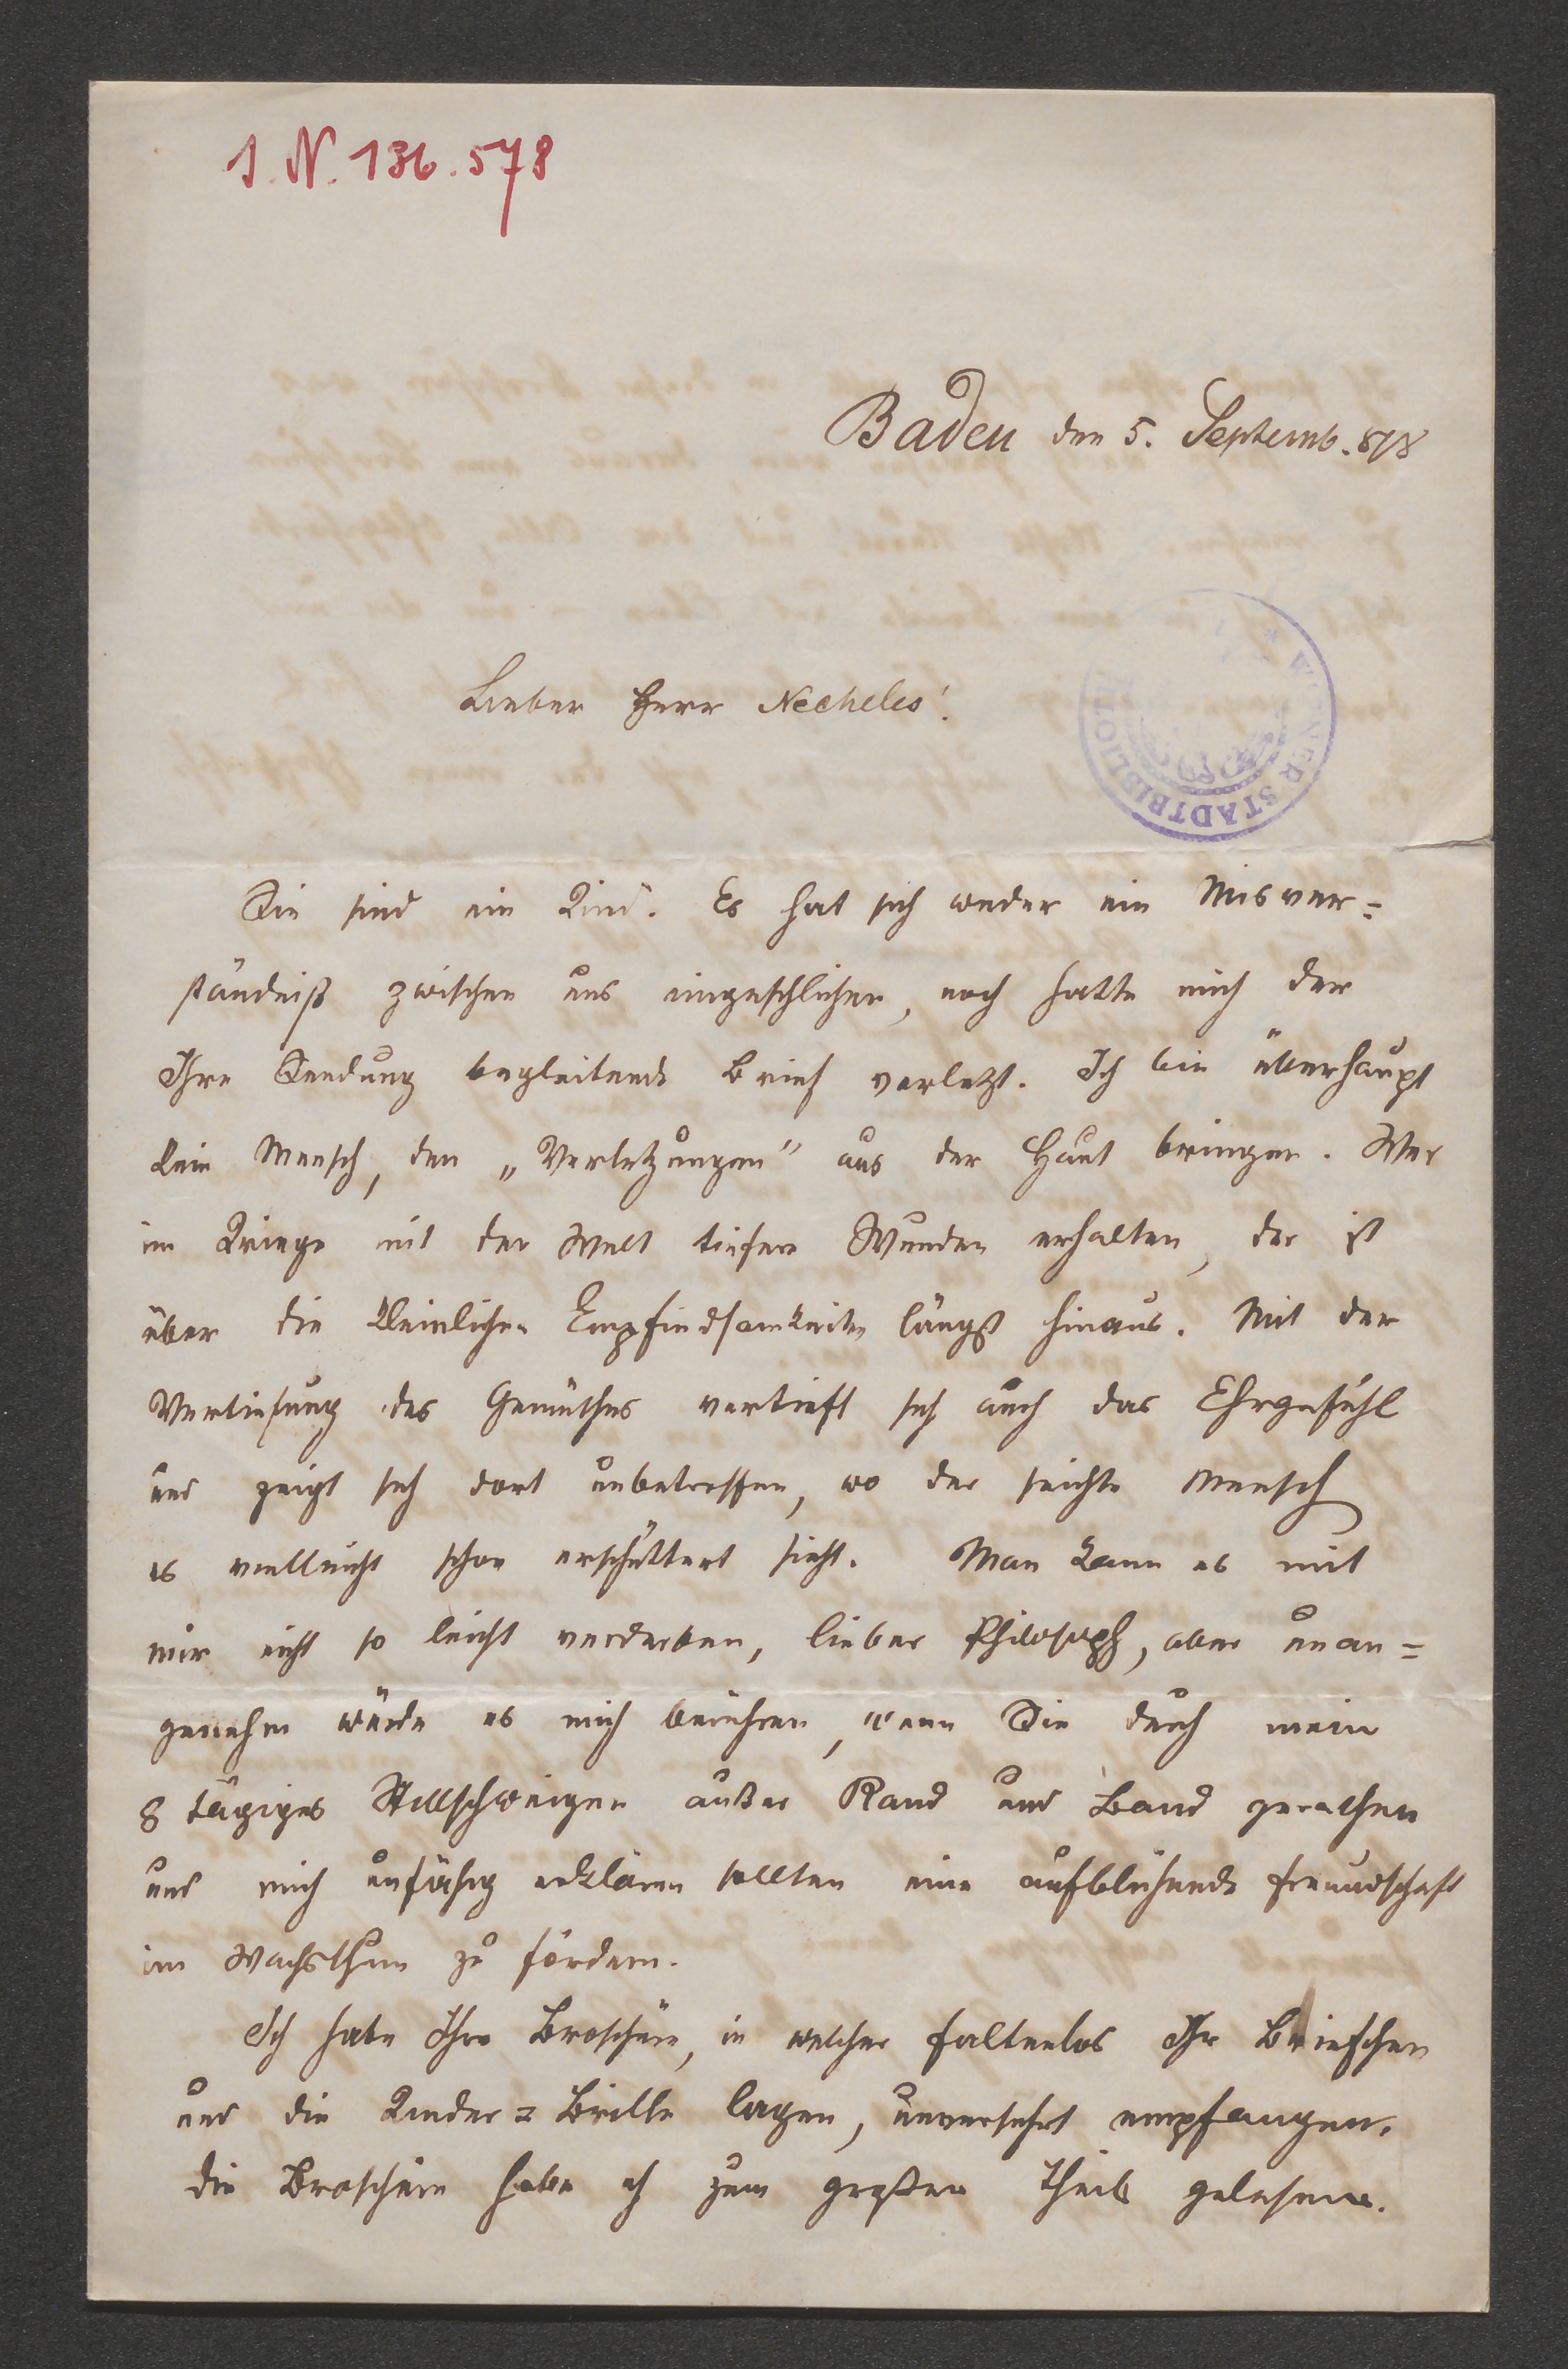 I. N. 136.578
Baden den 5. Septemb. 878
Lieber Herr Necheles!
WIENER STADTBIBLIOTHEK
Sie sind ein Kind. Es hat sich weder ein Misver=
ständniß zwischen uns eingeschlichen, noch hatte mich der
Ihre Sendung begleitende Brief verletzt. Ich bin überhaupt
kein Mensch, den „Verletzungen" aus der Haut bringen. Wer
im Kriege mit der Welt tiefere Wunden erhalten, der ist
über die kleinlichen Empfindsamkeiten längst hinaus. Mit der
Vertiefung des Gemüthes vertieft sich auch das Ehrgefühl
und zeigt sich dort unbetroffen, wo der seichte Mensch
es vielleicht schon erschüttert sieht. Man kann es mit
mir nicht so leicht verderben, lieber Philosoph, aber unan=
genehm würde es mich berühren, wenn Sie durch mein
8 tägiges Stillschweigen außer Rand und Band gerathen
und mich unfähig erklären sollten eine aufblühende Freundschaft
im Wachsthum zu fördern.
Ich habe Ihre Broschüre, in welcher faltenlos Ihr Briefchen
und die Kinder=Brille lagen, unversehrt empfangen.
die Broschüre habe ich zum großen Theil gelesen.